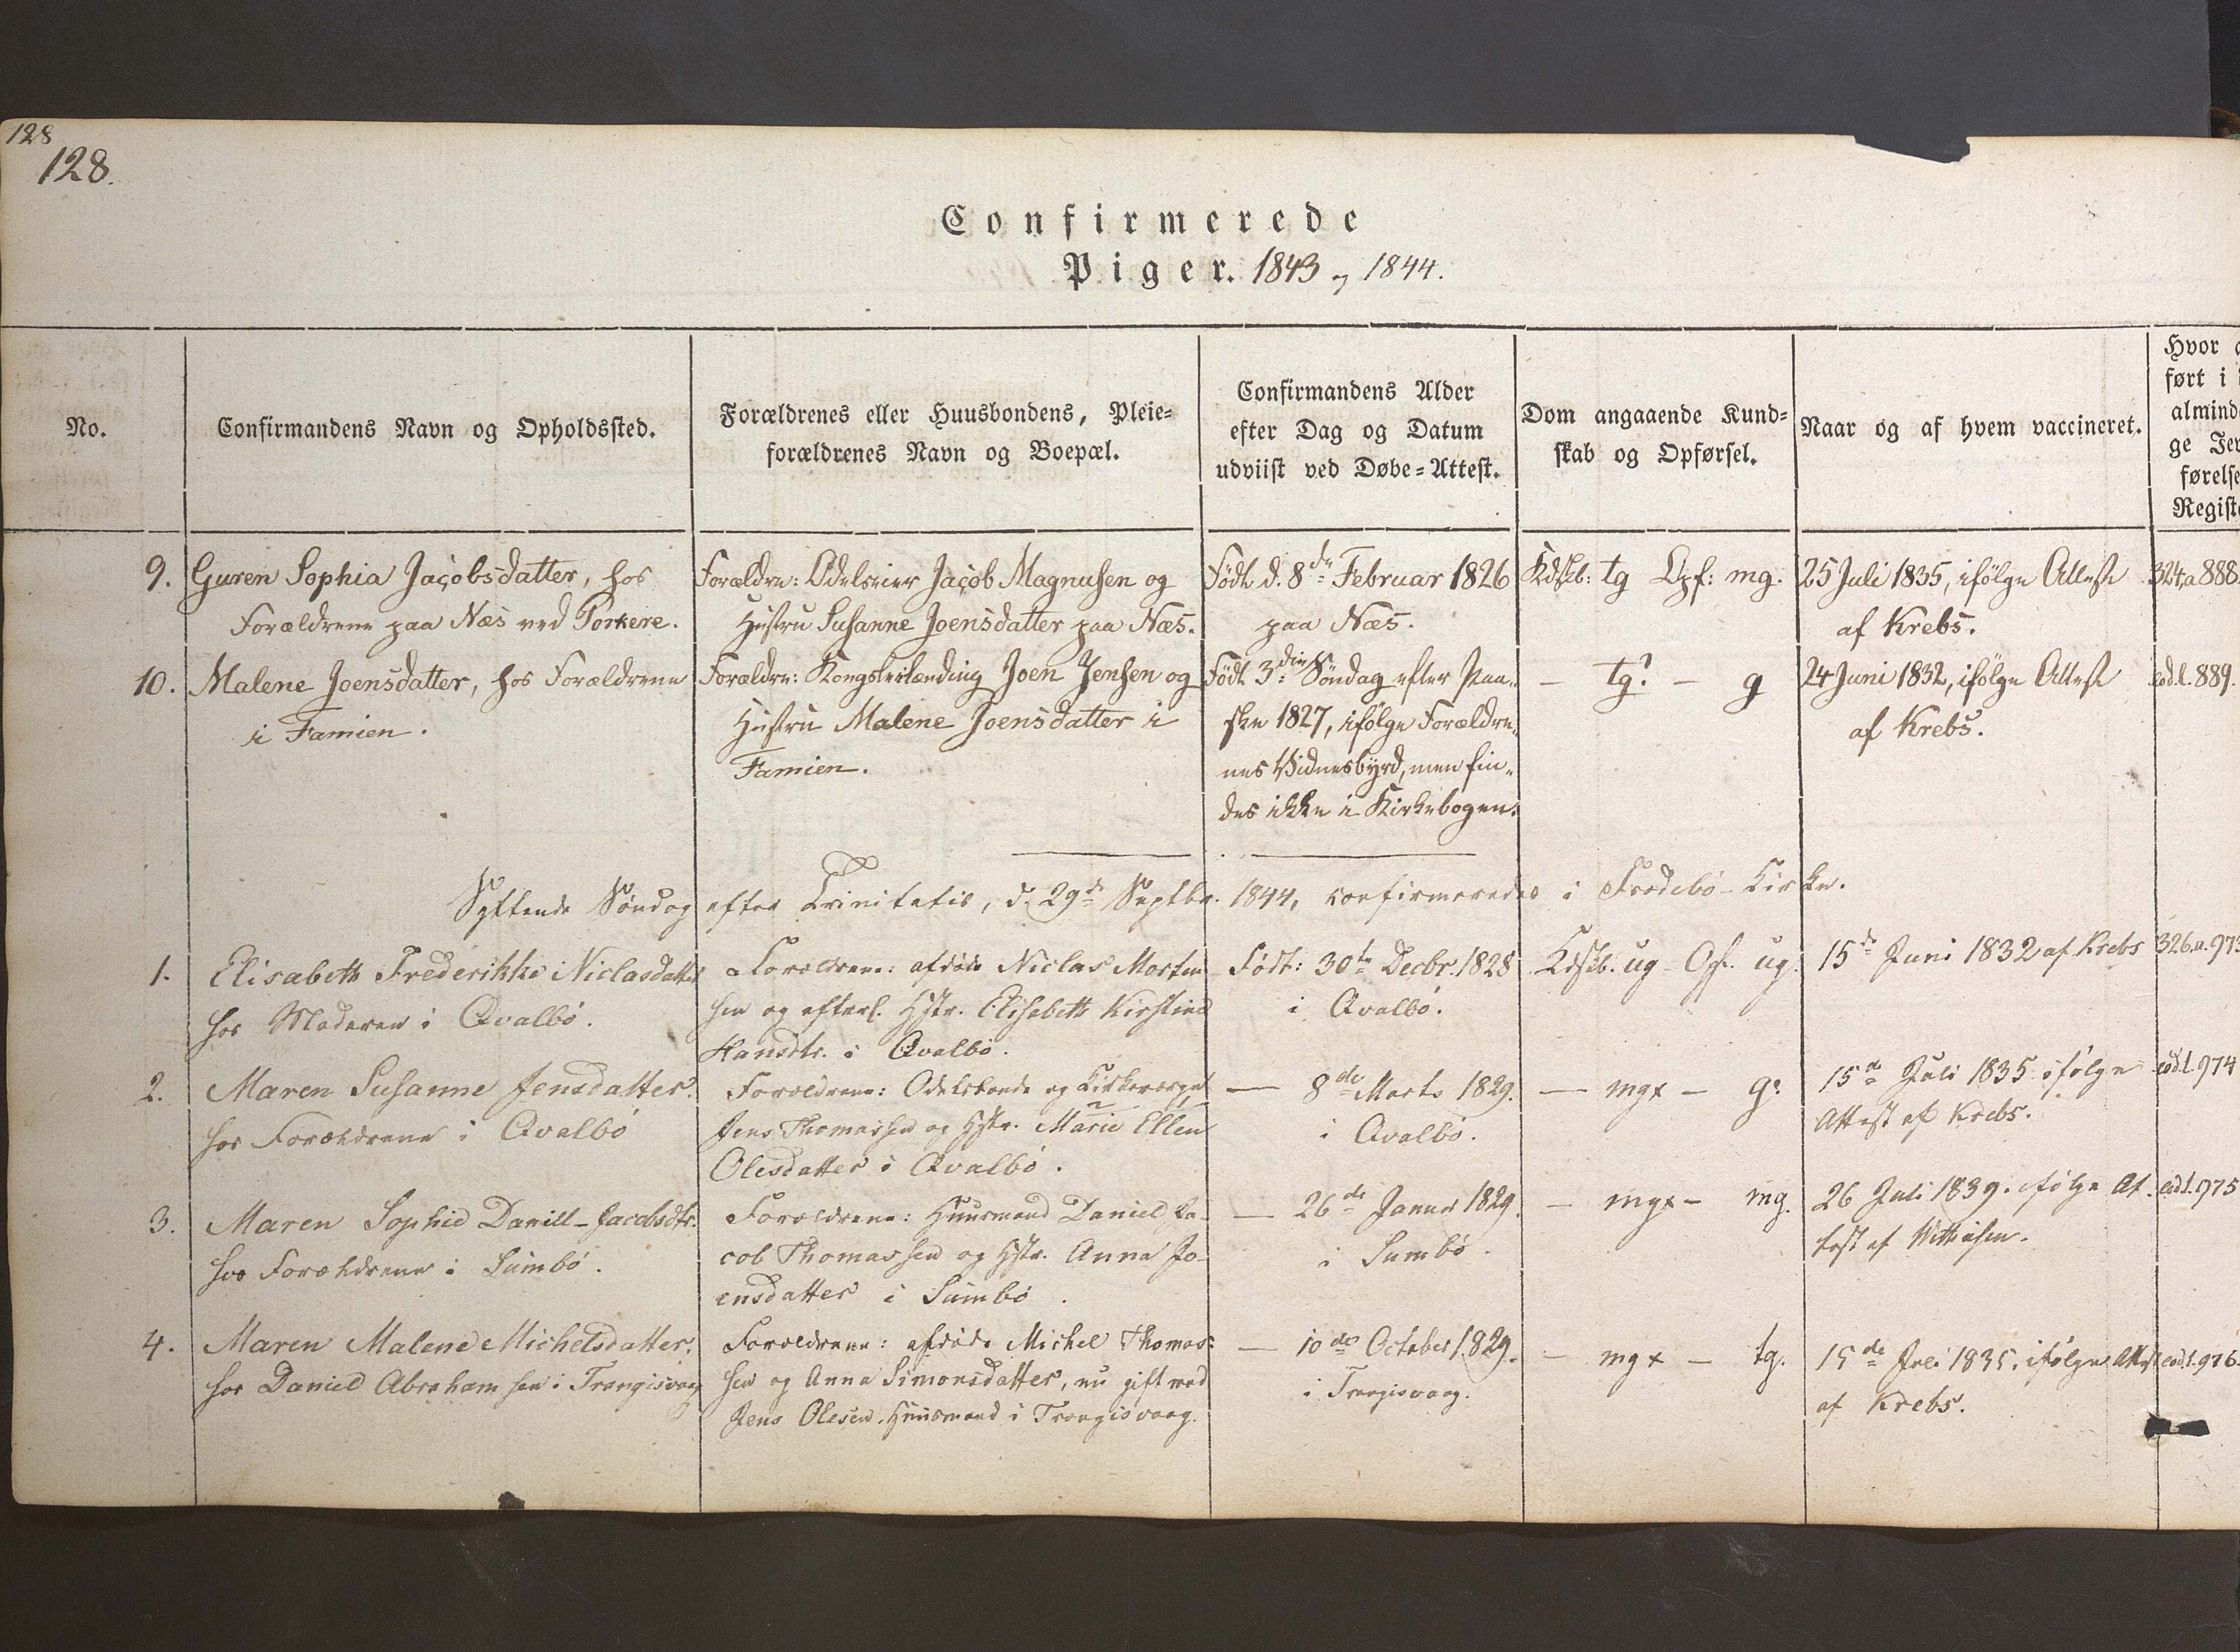 128
128.
Confirmerede
Piger. 1843 og 1844.
No.
Confirmandens Navn og Opholdssted.
Forældrenes eller Huusbondens, Pleie=
forældrenes Navn og Boepæl.
Confirmandens Alder
efter Dag og Datum
udviist ved Døbe=Attest.
Dom angaaende Kund=
skab og Opførsel.
Naar og af hvem vaccineret.
Hvor
ført i
almind
ge Je
førelse
Regist
9.
Guren Sophia Jacobsdatter, hos
Forældrene paa Næs ved Porkere.
Forældre: Odelseier Jacob Magnusen og
Hustru Susanne Joensdatter paa Næs.
Født d. 8de Februar 1826
paa Næs.
Kdskb: tg Opf: mg.
25 Juli 1835, ifölge Attest
af Krebs.
324,a 888.
10.
Malene Joensdatter, hos Forældrene
i Famien.
Forældre: Kongsleilænding Joen Jensen og
Hustru Malene Joensdatter i
Famien.
Født 3die Söndag efter Paa„
ske 1827, ifölge Forældre„
nes Vidnesbyrd, men fin„
des ikke i Kirkebogen.
— tg? — g
24 Juni 1832, ifölge Attest
af Krebs.
eod.l. 889.
Syttende Söndag efter Trinitatis, d. 29de Septbr. 1844, confirmeredes i Frodebö-Kirke.
1.
Elisabeth Frederikke Niclasdatter
hos Moderen i Qvalbö.
Forældrene: afdöde Niclas Morten
sen og efterl. Hstr. Elisabeth Kirstine
Hansdtr. i Qvalbö.
Födt: 30te Decbr. 1828
i Qvalbö.
Kdskb. ug — Opf. ug.
15de Juni 1832 af Krebs
326.a.973
2.
Maren Susanne Jensdatter.
hos Forældrene i Qvalbö
Forældrene: Odelsbonde og Kirkeværge
Jens Thomassen og Hstr. Marie Ellen
Olesdatter i Qvalbö.
— 8de Marts 1829.
i Qvalbö.
— mgx — g?
15de Juli 1835 ifölge
Attest af Krebs.
eod.l. 974
3.
Maren Sophie Daniell-Jacobsdtr.
hos Forældrene i Sumbö.
Forældrene: Huusmand Daniel Ja-
cob Thomassen og Hstr. Anna Jo-
ensdatter i Sumbö.
— 26de Januar 1829.
i Sumbö.
— mgx — mg.
26 Juli 1839. ifölge At-
test af
eod.l. 975
4.
Maren Malene Michelsdatter.
hos Daniel Abrahamsen i Trangisvaag
Forældrene: afdöde Michel Thomas=
sen og Anna Simonsdatter, nu gift med
Jens Olesen. Huusmand i Trangisvaag.
— 10de October 1829.
i Trangisvaag.
— mgx — tg.
15de Juli 1835. ifölge Attest
af Krebs.
eod.l. 976.